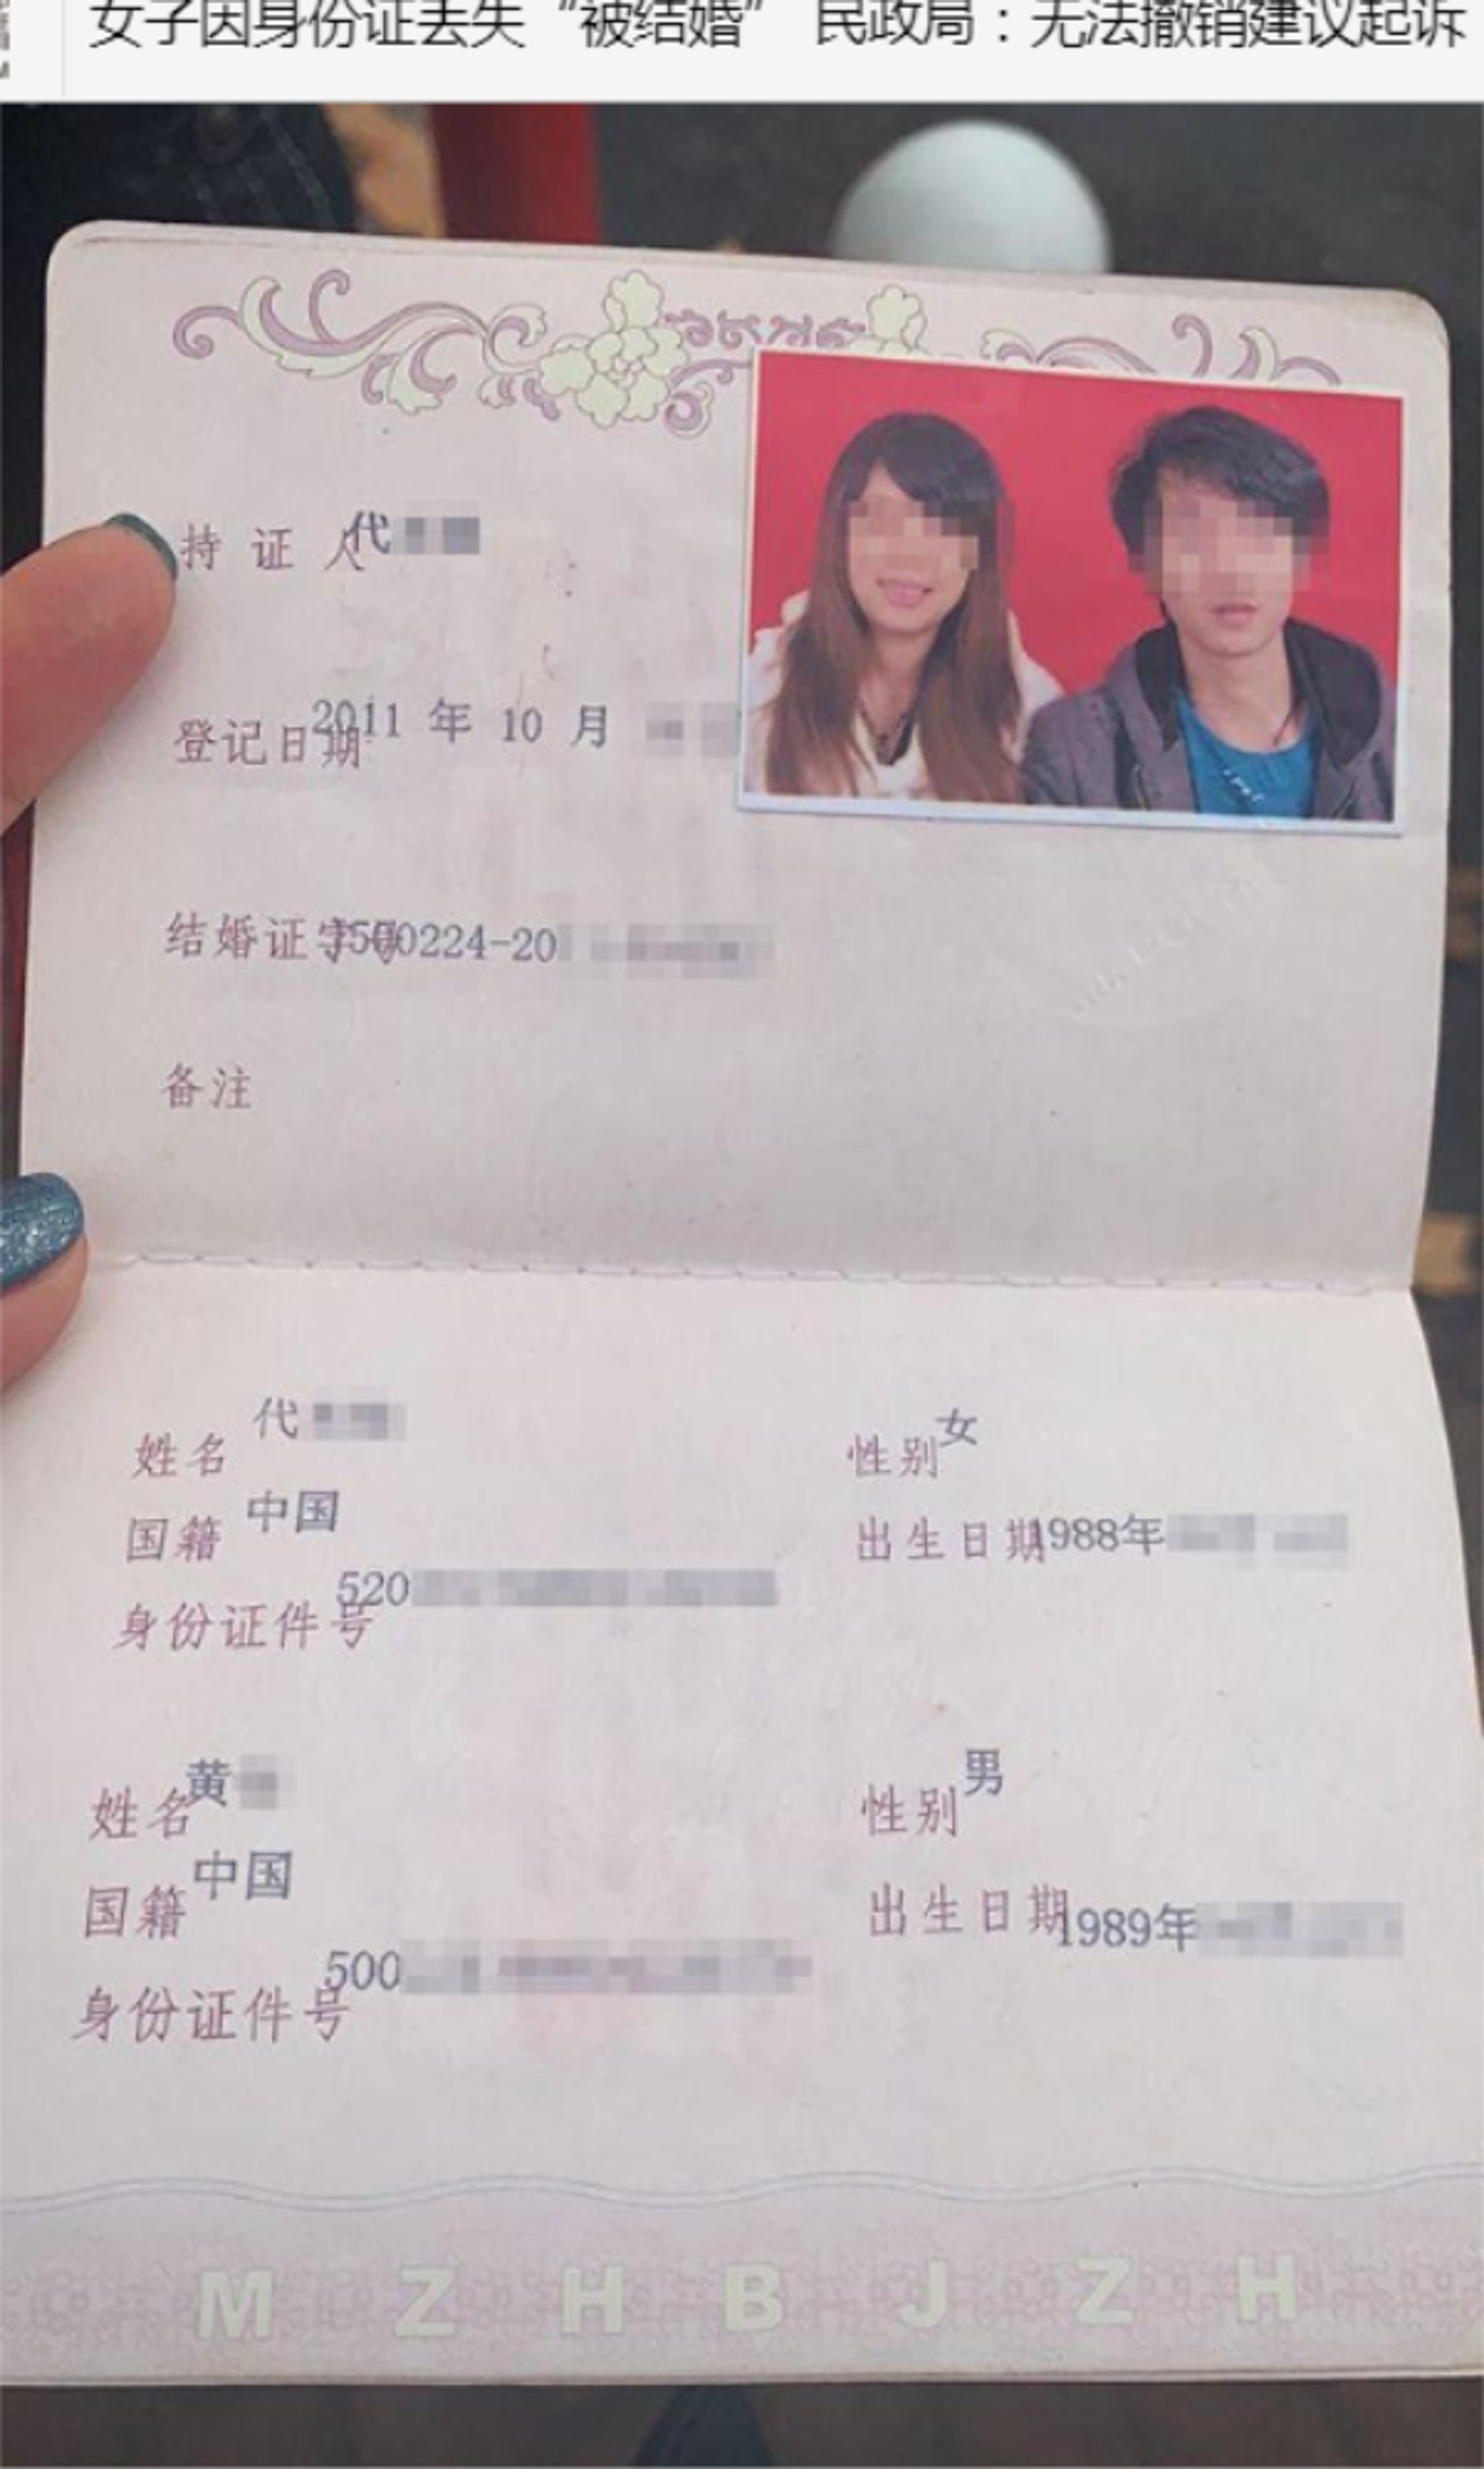 女子因身份证丢失“被结婚” 民政局：无法撤销建议起诉
持证人代
登记日期2011年10月
结婚证字号J500224-20
备注
姓名 代
性别 女
国籍 中国
出生日期1988年
身份证件号 520
姓名 黄
性别 男
国籍 中国
出生日期1989年
身份证件号 500
M Z H B J Z H